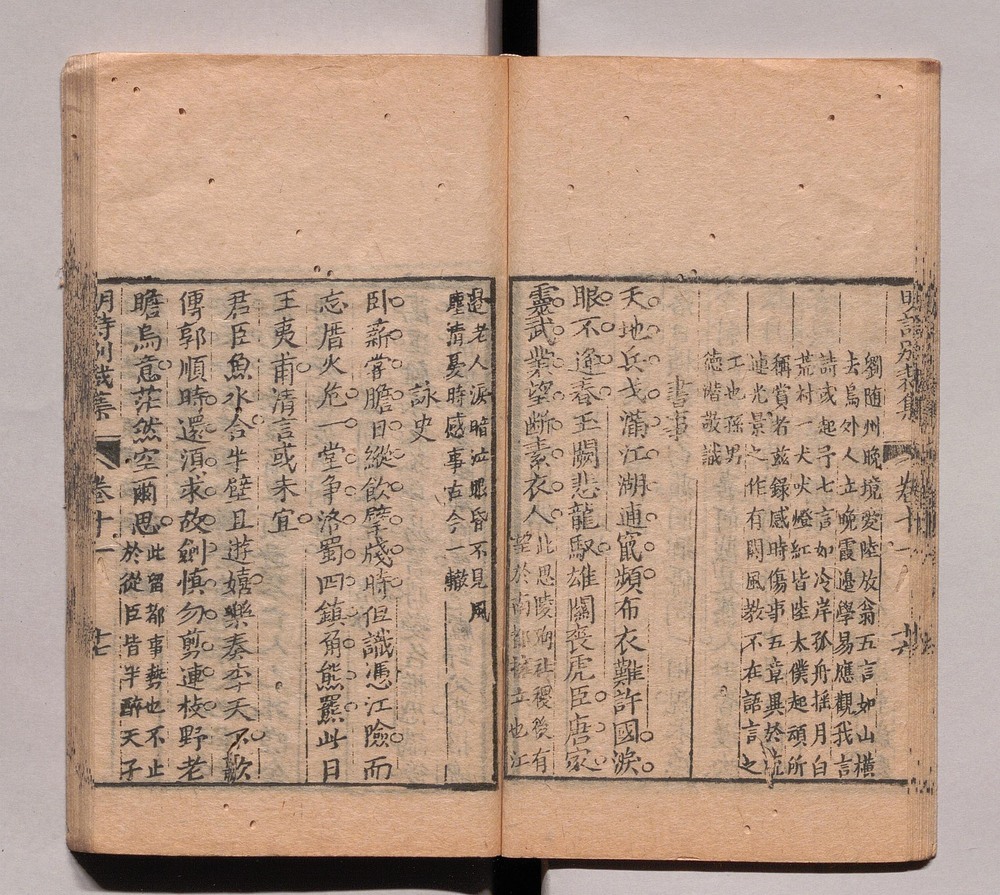 明詩別裁集
卷十一
劉隨州晚境愛陸放翁五言如山橫
去鳥外人立晚霞邊學易應觀我言
詩或起予七言如冷岸孤舟搖月白
荒村一犬吠燈紅皆陸太僕起頑所
稱賞者茲録感時傷事五章異於流
連光景之作有關風教不在語言之
工也孫男
德潛敬識
書事
天地兵戈滿江湖逋竄頻布衣難許國淚
眼不逢春王闕悲龍馭雄關喪虎臣唐家
靈武業望斷素衣人此思陵殉社稷後有
望於南都擁立也江
邊老人淚暗泣眼昏不見風
塵清憂時感事古今一轍
詠史
卧薪嘗膽日縱飲擘牋時但識憑江險而
忘厝火危一堂争洛蜀四鎮角熊羆此日
王夷甫清言或未宜
君臣魚水合半壁且遊嬉樂奏李天下歌
傳郭順時還須求故劍慎勿剪連枝野老
瞻烏意茫然空爾思此留都事勢也不止
於從臣皆半醉天子
明詩別裁集
卷十一
十七